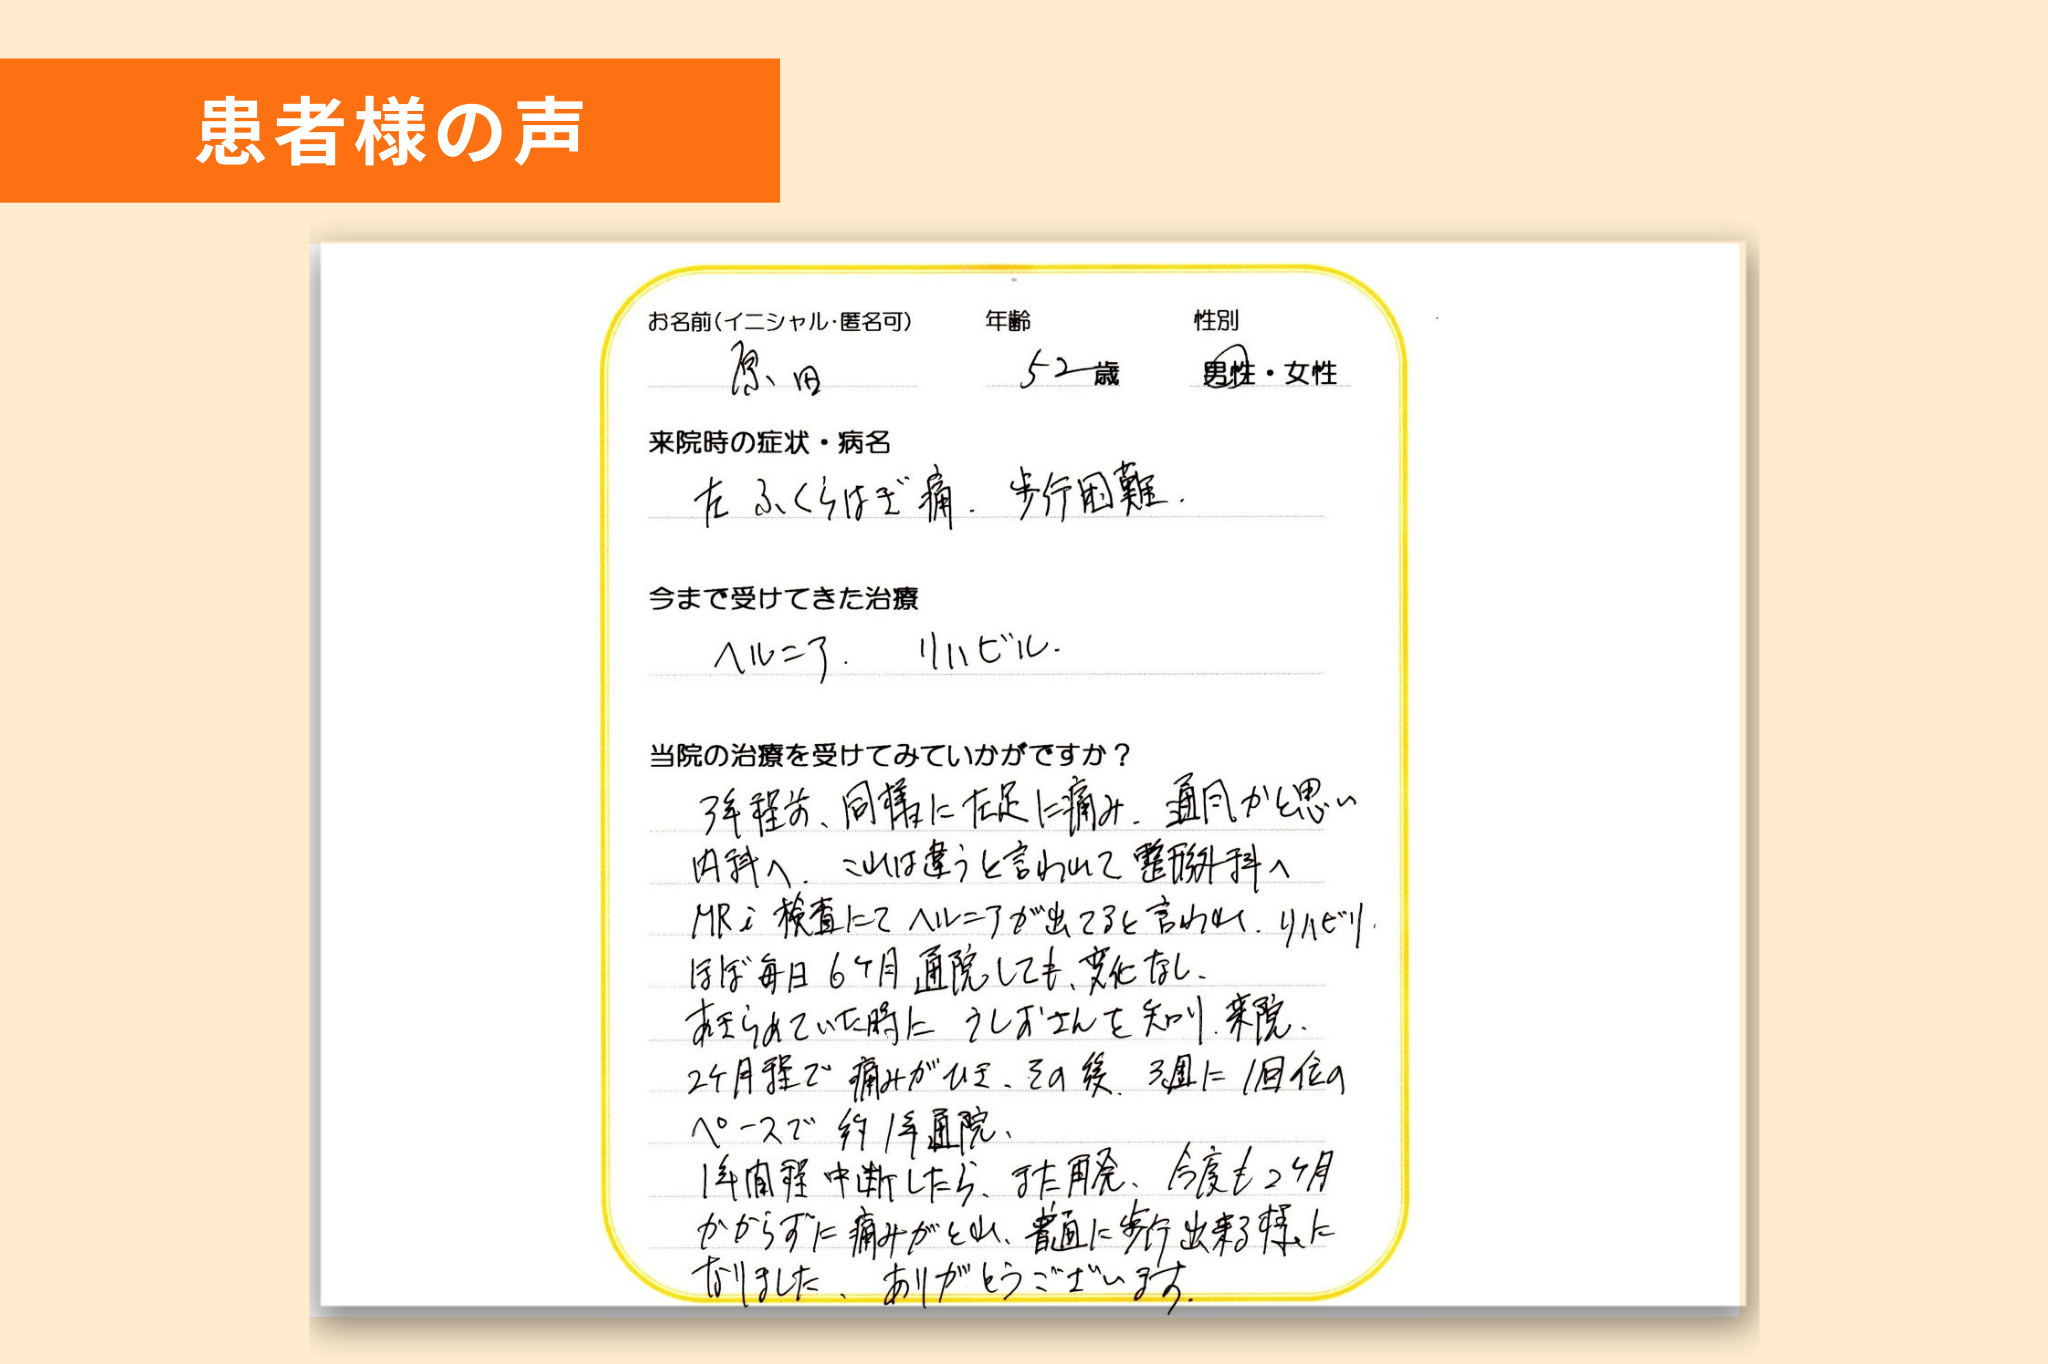 患者様の声
お名前(イニシャル・匿名可) 年齢 性別
原田 52歳 男性・女性
来院時の症状・病名
左ふくらはぎ痛. 歩行困難.
今まで受けてきた治療
ヘルニア. リハビル.
当院の治療を受けてみていかがですか？
3年程前、同様に左足に痛み. 通風かと思い
内科へ. これは違うと言われて整形外科へ
MRi検査にてヘルニアが出てると言われ. リハビリ.
ほぼ毎日6ケ月通院しても、変化なし.
あきらめていた時に うしおさんを知り. 来院.
2ケ月程で痛みがひき、その後. 3週に1回位の
ペースで約1年通院、
1年間程中断したら、また再発、今度も2ケ月
かからずに痛みがとれ、普通に歩行出来る様に
なりました、ありがとうございます.